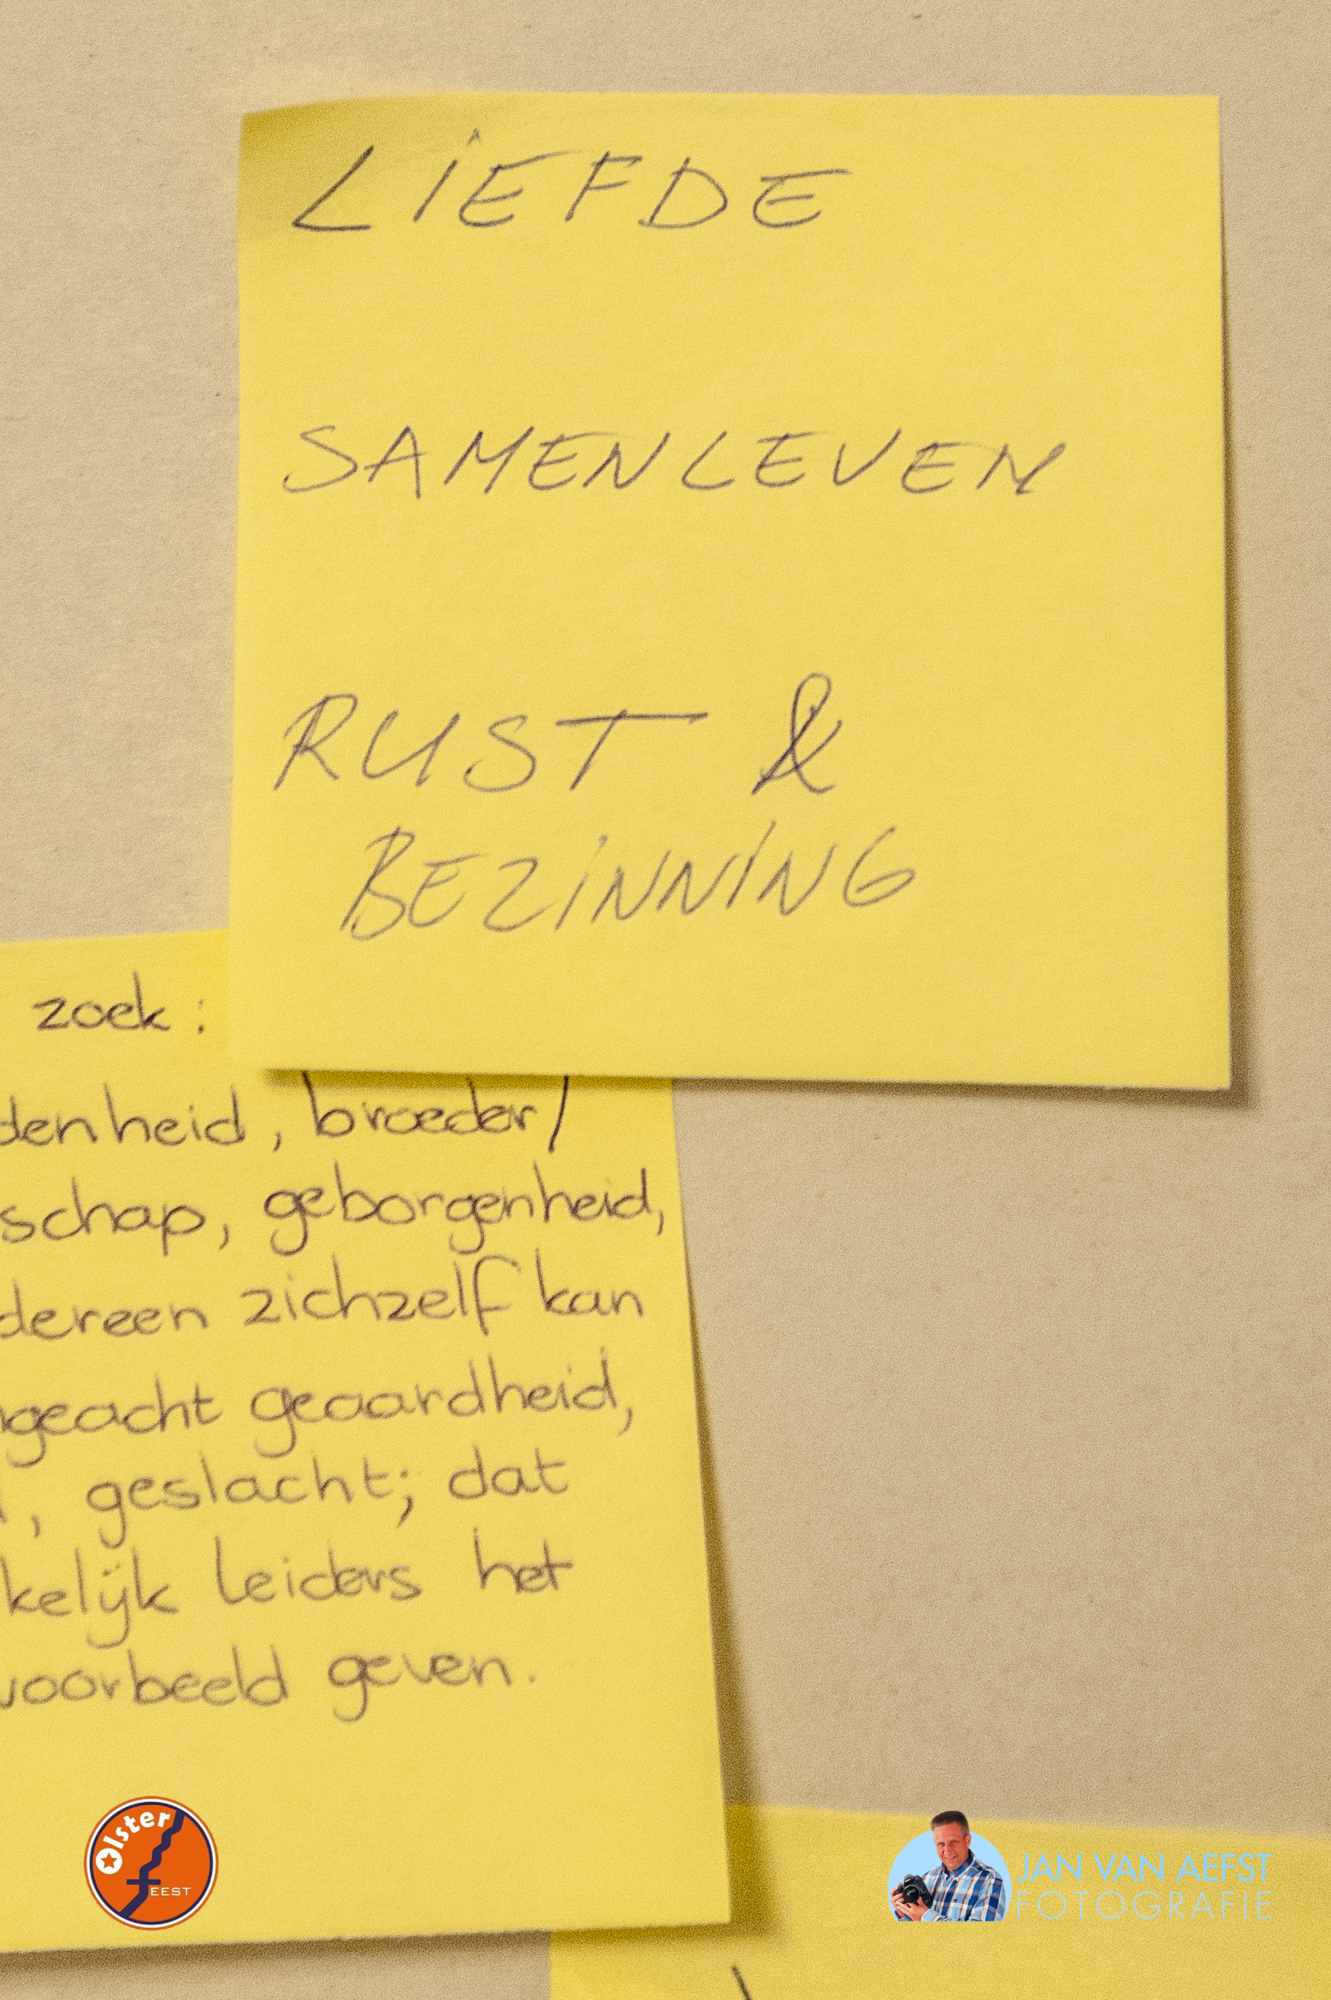 LIEFDE
SAMENLEVEN
RUST &
BEZINNING
zoek:
denheid, broeder/
schap, geborgenheid,
dereen zichzelf kan
ngeacht geaardheid,
, geslacht; dat
kelijk leiders het
voorbeeld geven.
Olster
fEEST
JAN VAN AEFST
FOTOGRAFIE